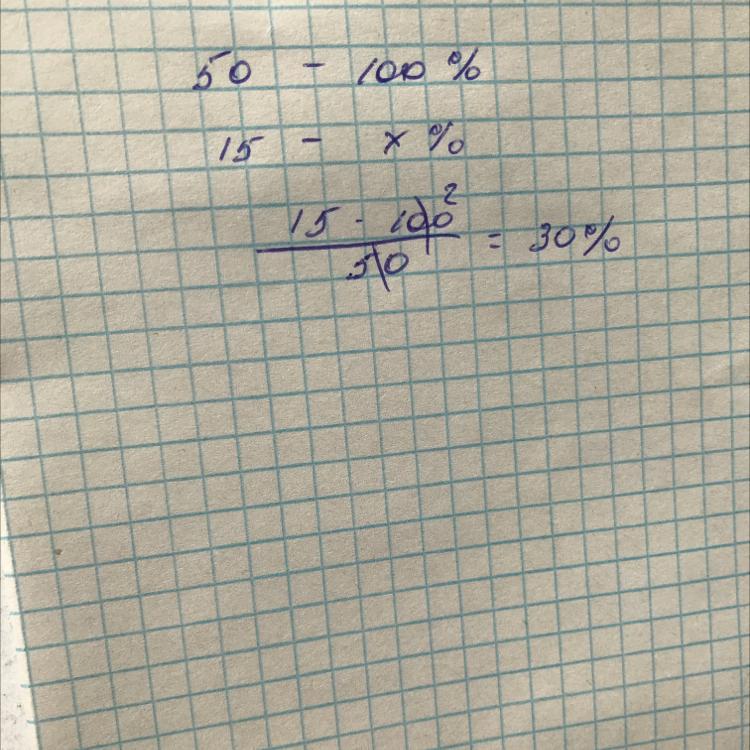 50 - 100 %
15 - x %
15 · 100 2
50
= 30 %